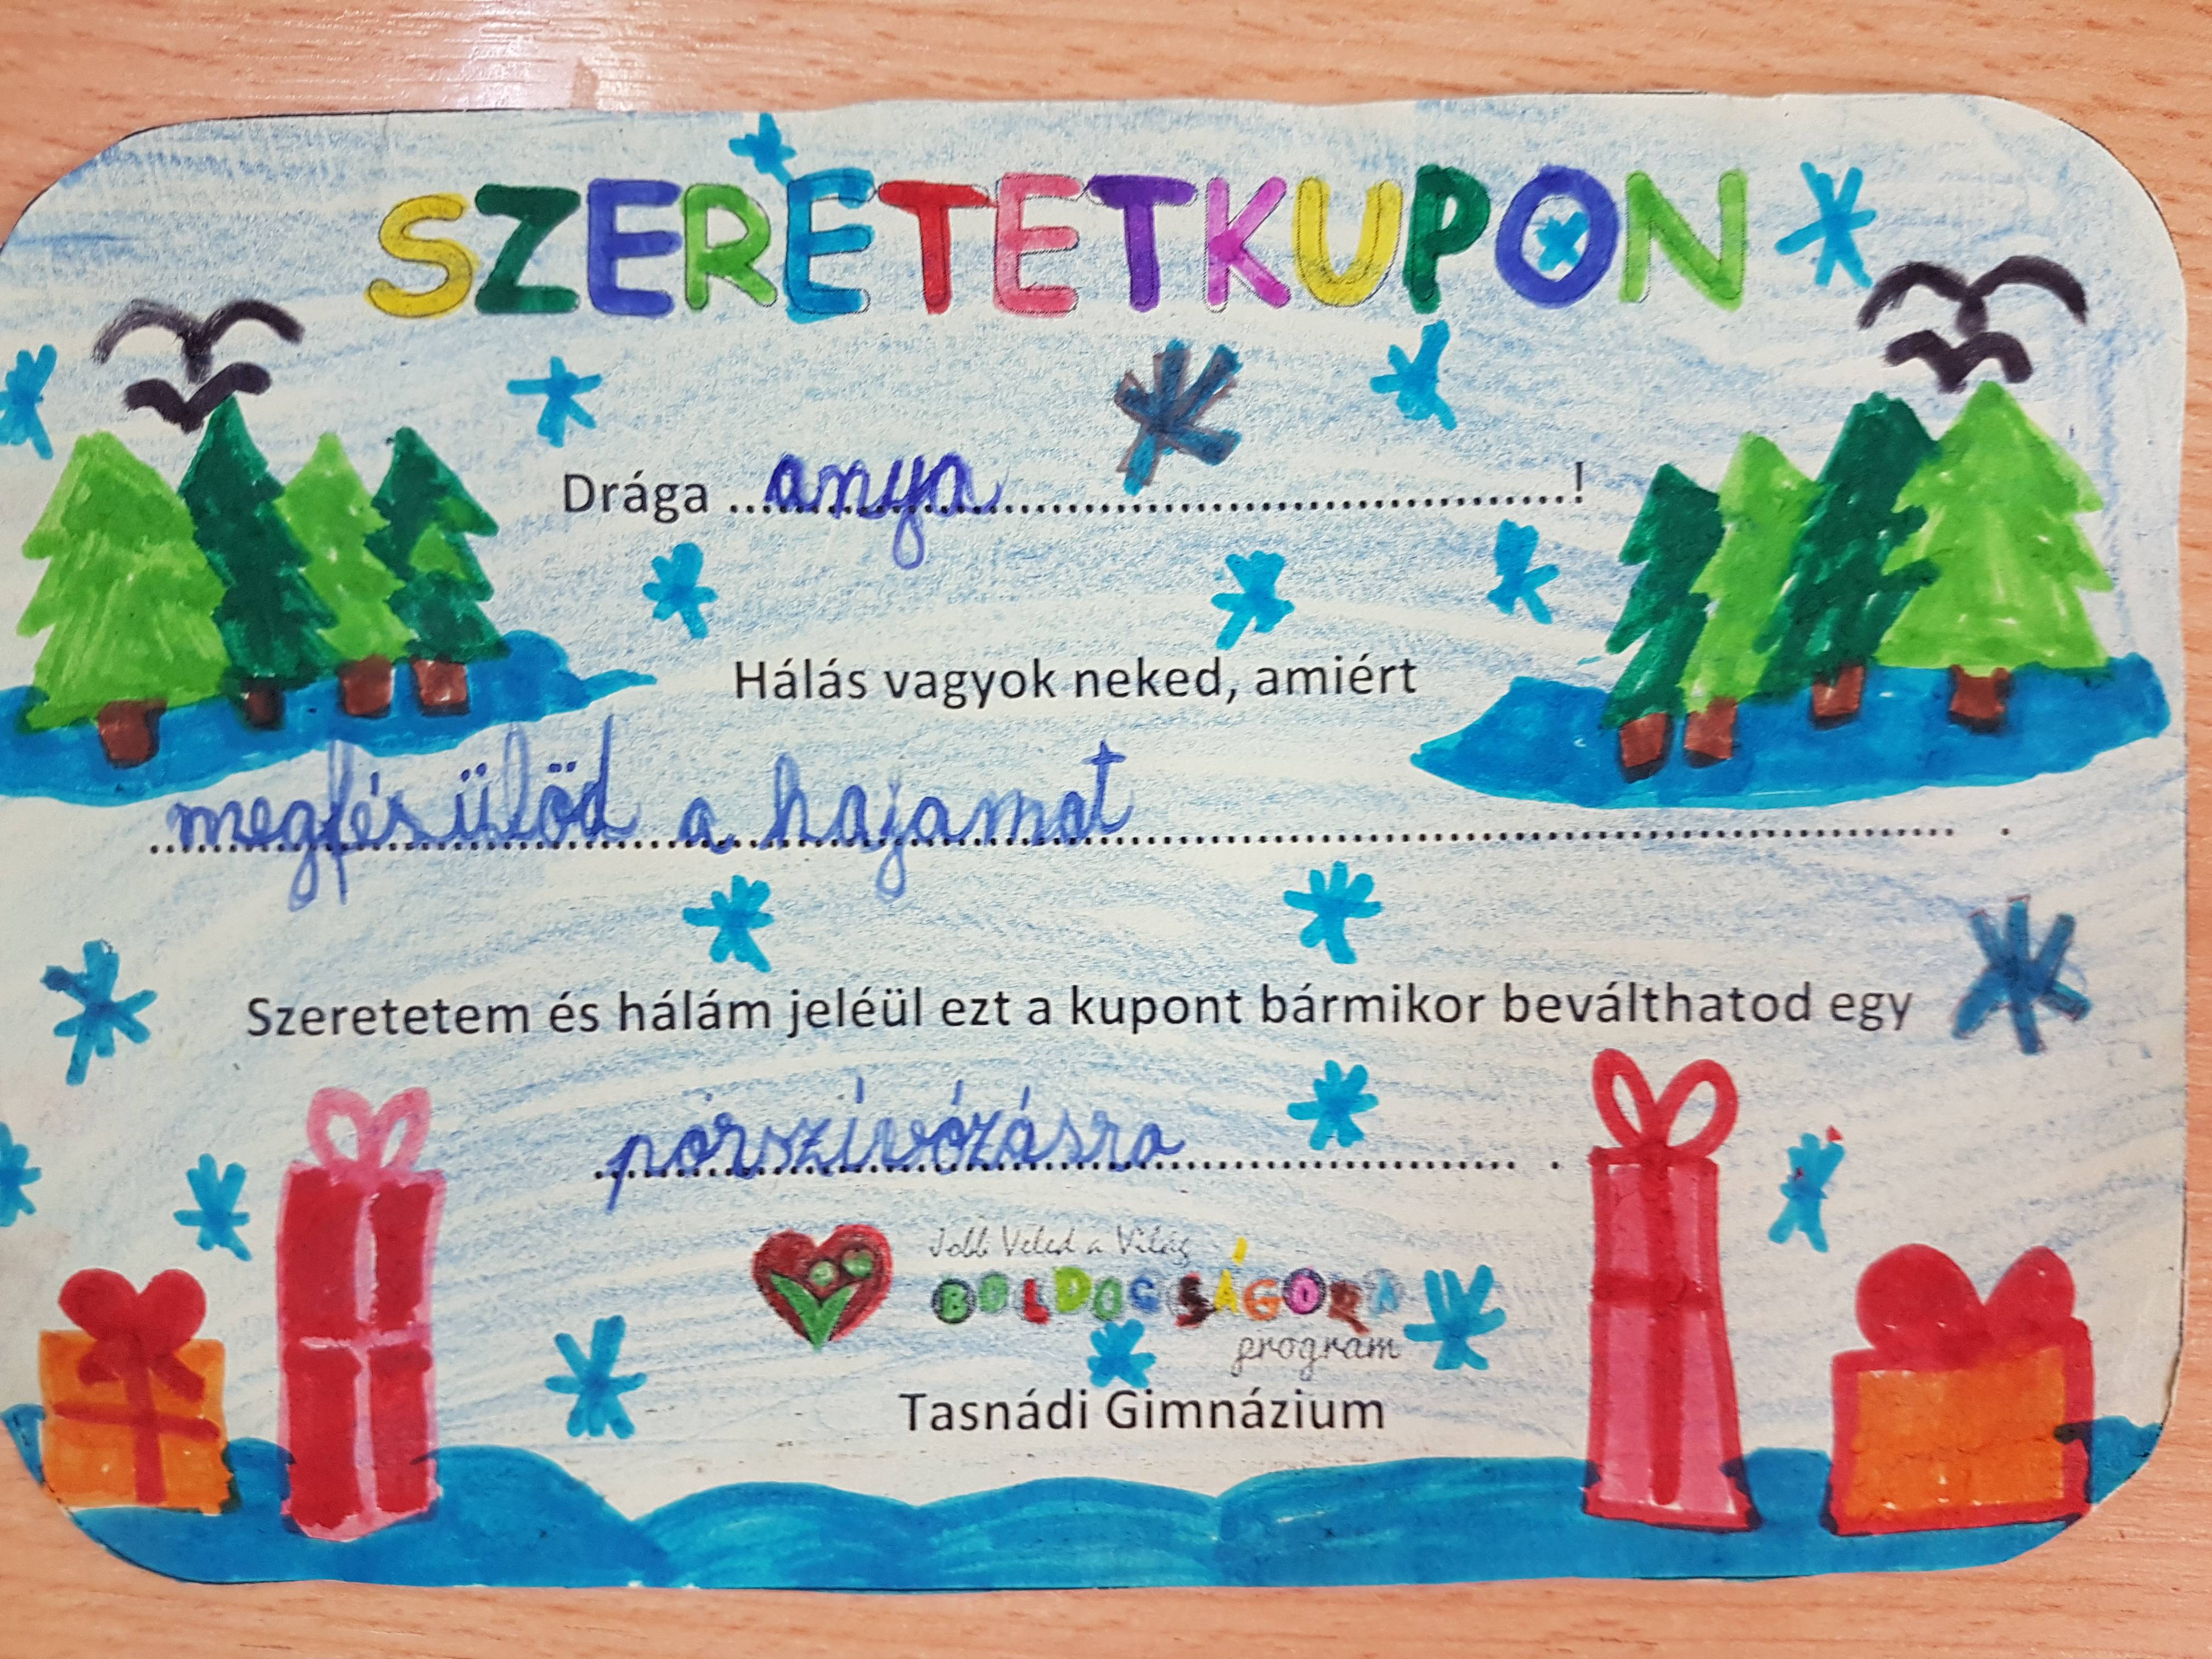 SZERETETKUPON
Drága ...anya...!
Hálás vagyok neked, amiért
megfésülöd a hajamat .
Szeretetem és hálám jeléül ezt a kupont bármikor beválthatod egy
pórszívózásra .
Jobb Veled a Világ
BOLDOGSÁGÓRA
program
Tasnádi Gimnázium